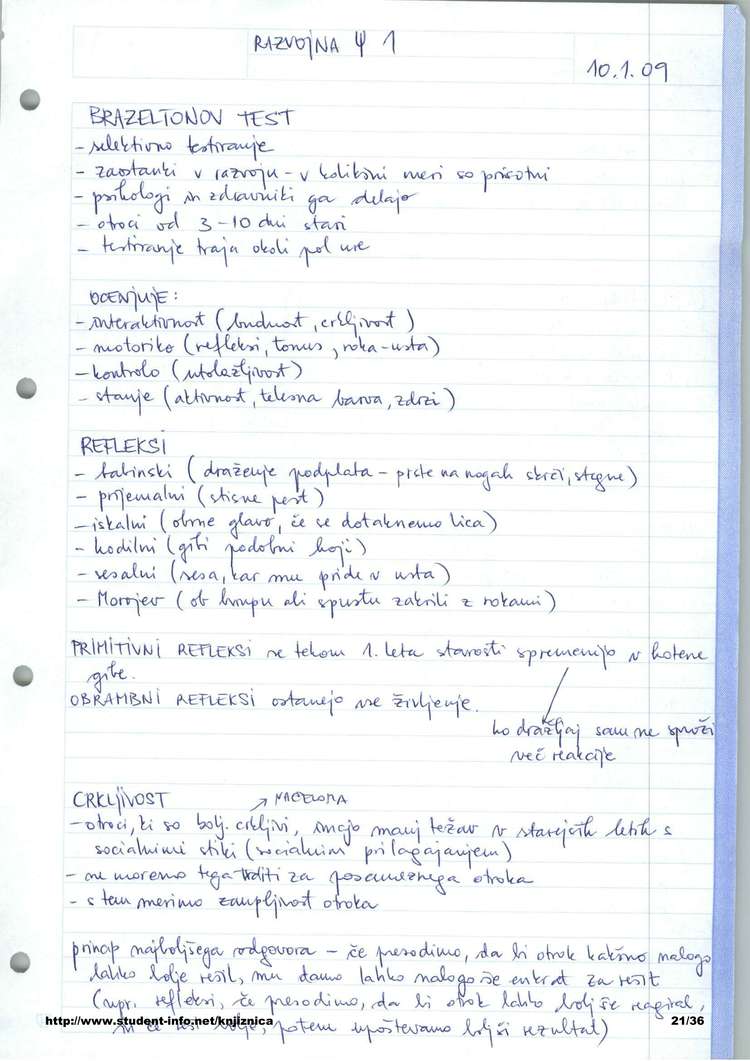 RAZVOJNA Ψ 1
10.1.09
BRAZELTONOV TEST
- selektivno testiranje
- zaostanki v razvoju - v kolikšni meri so prisotni
- psihologi in zdravniki ga delajo
- otroci od 3-10 dni stari
- testiranje traja okoli pol ure
OCENJUJE:
- interaktivnost (budnost, crkljivost)
- motoriko (refleksi, tonus, roka-usta)
- kontrolo (utolažljivost)
- stanje (aktivnost, telesna barva, zdrzi)
REFLEKSI
- babinski (draženje podplata - prste na nogah skrči, stegne)
- prijemalni (stisne pest)
- iskalni (obrne glavo, če se dotaknemo lica)
- hodilni (gibi podobni hoji)
- sesalni (sesa, kar mu pride v usta)
- Morojev (ob hrupu ali spustu zakrili z rokami)
PRIMITIVNI REFLEKSI se tekom 1. leta starosti spremenijo v hotene
gibe.
OBRAMBNI REFLEKSI ostanejo vse življenje.
ko dražljaj sam ne sproži
več reakcije
CRKLJIVOST → NAČELOMA
- otroci, ki so bolj crkljivi, imajo manj težav v starejših letih s
socialnimi stiki (socialnim prilagajanjem)
- ne moremo tega trditi za posameznega otroka
- s tem merimo zaupljivost otroka
princip najboljšega odgovora - če presodimo, da bi otrok kakšno nalogo
lahko bolje rešil, mu damo lahko nalogo še enkrat za rešit
(npr. refleksi, če presodimo, da bi otrok lahko boljše reagiral,
in če reši bolje, potem upoštevamo boljši rezultat)
http://www.student-info.net/knjiznica
21/36